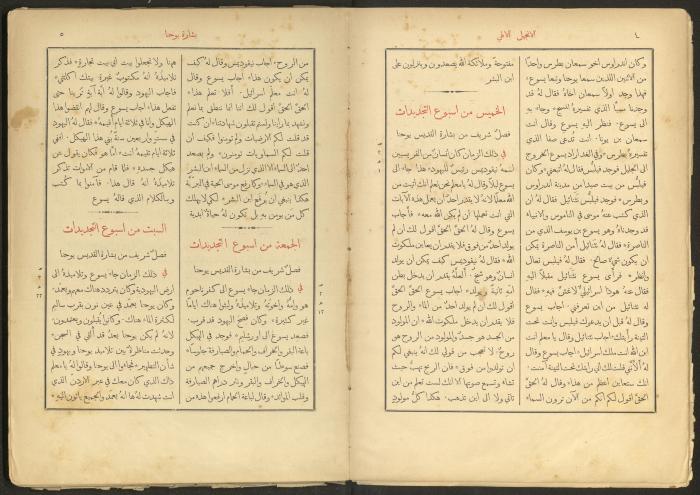 ٤
الانجيل الالهي
وكان اندراوس اخو سمعان بطرس واحدًا
من الاثنين اللذين سمعا يوحنا وتبعا يسوع
فهذا وجد اولًا سمعان اخاهُ فقال قد
وجدنا مسيَّا الذي تفسيرهُ المسيح. وجاء بهِ
الى يسوع. فنظر اليهِ يسوع وقال انت
سمعان بن يونا. انت تدعى صفا الذي
تفسيرهُ بطرس. وفي الغد اراد يسوع الخروج
الى الجليل فوجد فيلبُّس فقال لهُ اتبعني. وكان
فيلبُّس من بيت صيدا من مدينة اندراوس
وبطرس. فوجد فيلبُّس نثنائيل فقال لهُ ان
الذي كتب عنهُ موسى في الناموس والانبياء
قد وجدناهُ وهو يسوع بن يوسف الذي من
الناصرة. فقال لهُ نثنائيل أمن الناصرة يمكن
ان يكون شيءٌ صالح. فقال لهُ فيلبُّس تعال
وانظر. فرأى يسوع نثنائيل مقبلًا اليهِ
فقال عنهُ هوذا اسرائيليٌّ لا غش فيهِ. فقال
لهُ نثنائيل من اين تعرفني. اجاب يسوع
وقال لهُ قبل ان يدعوك فيلبُّس وانت تحت
التينة رأيتك. اجاب نثنائيل وقال يا معلم انت
ابن الله انت ملك اسرائيل. اجاب يسوع وقال
لهُ ألأني قلت لك اني رأيتك تحت التينة آمنت.
انك ستعاين اعظم من هذا. وقال لهُ الحقَّ
الحقَّ اقول لكم انكم من الآن ترون السماء
مفتوحة وملائكة الله يصعدون وينزلون على
ابن البشر
الخميس من اسبوع التجديدات
فصلٌ شريف من بشارة القديس يوحنا
في ذلك الزمان كان انسانٌ من الفريسيين
اسمهُ نيقوديمس رئيسٌ لليهود. هذا جاء الى
يسوع ليلًا وقال لهُ يا معلم نحن نعلم انك أتيت من
الله معلمًا لانهُ لا يقدر احدٌ ان يعمل هذه الآيات
التي انت تعملها ان لم يكن الله معهُ. فاجاب
يسوع وقال لهُ الحقَّ الحقَّ اقول لك ان لم
يولد احدٌ من فوق فلا يقدر ان يعاين ملكوت
الله. فقال لهُ نيقوديمس كيف يمكن ان يولد
انسانٌ وهو شيخٌ. ألعلهُ يقدر ان يدخل بطن
امهِ ثانيةً ويولد. اجاب يسوع الحقَّ الحقَّ
اقول لك ان لم يولد احدٌ من الماء والروح
فلا يقدر ان يدخل ملكوت الله. ان المولود
من الجسد هو جسدٌ والمولود من الروح هو
روحٌ. لا تعجب من قولي لك انهُ ينبغي لكم
ان تولدوا من فوق. فان الريح تهبُّ حيث
تشاء وتسمع صوتها الا انك لست تعلم من اين
تأتي ولا الى اين تذهب. هكذا كلُّ مولودٍ
بشارة يوحنا
٥
من الروح. اجاب نيقوديمس وقال لهُ كيف
يمكن ان يكون هذا. اجاب يسوع وقال
لهُ انت معلم اسرائيل. أفلا تعلم هذا.
الحقَّ الحقَّ اقول لك اننا انما ننطق بما نعلم
ونشهد بما رأينا ولستم تقبلون شهادتنا. ان كنت
قد قلت لكم الارضيات ولم تؤمنوا فكيف ان
قلت لكم السماويات تؤمنون. ولم يصعد
احدٌ الى السماء الا الذي نزل من السماء ابن البشر
الذي هو في السماء. وكما رفع موسى الحية في البرية
هكذا ينبغي ان يُرفع ابن البشر. لكي لا يهلك
كل من يؤمن بهِ بل يكون لهُ حياةٌ ابدية
الجمعة من اسبوع التجديدات
فصلٌ شريف من بشارة القديس يوحنا
في ذلك الزمان جاء يسوع الى كفرناحوم
هو وامهُ واخوتهُ وتلاميذهُ ولبثوا هناك ايامًا
غير كثيرة. وكان فصح اليهود قد قرب.
فصعد يسوع الى اورشليم. فوجد في الهيكل
باعة البقر والخراف والحمام والصيارفة جلوسًا.
فصنع سوطًا من حبالٍ واخرج جميعهم من
الهيكل والخراف والبقر ونثر دراهم الصيارفة
وقلب الموائد. وقال لباعة الحمام ارفعوا هذه من
ههنا ولا تجعلوا بيت ابي بيت تجارة. فذكر
تلاميذهُ انهُ مكتوبٌ غيرة بيتك اكلتني.
فاجاب اليهود وقالوا لهُ ايَّة آيةٍ ترينا حتى
تفعل هذا. اجاب يسوع وقال لهم انقضوا هذا
الهيكل وانا في ثلاثة ايامٍ أقيمهُ. فقال لهُ اليهود
في ستٍّ واربعين سنةً بُني هذا الهيكل. أفي
ثلاثة ايام تقيمهُ انت. اما هو فكان يقول عن
هيكل جسدهِ. فلما قام من الاموات تذكر
تلاميذهُ انهُ قال هذا. فآمنوا بما كُتب
وبالكلام الذي قالهُ يسوع
السبت من اسبوع التجديدات
فصلٌ شريف من بشارة القديس يوحنا
في ذلك الزمان جاء يسوع وتلاميذهُ الى
ارض اليهودية وكان يتردد هناك معهم ويعمد.
وكان يوحنا يعمد في عين نون بقرب ساليم
لكثرة الماء هناك. وكانوا يُقبلون ويعتمدون.
لانهُ لم يكن يوحنا بعدُ قد أُلقي في السجن.
وحدثت مناظرةٌ بين تلاميذ يوحنا ويهود في
شأن التطهير. فجاءوا الى يوحنا وقالوا لهُ يا معلم
ذاك الذي كان معك في عبر الاردن الذي
انت شهدت لهُ ها انهُ يعمد والجميع يأتون اليهِ.